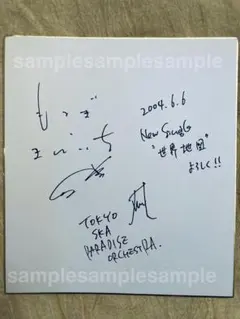 samplesamplesample
2004.6.6
New Single
"世界地図"
よろしく!!
TOKYO
SKA
PARADISE
ORCHESTRA.
samplesamplesample